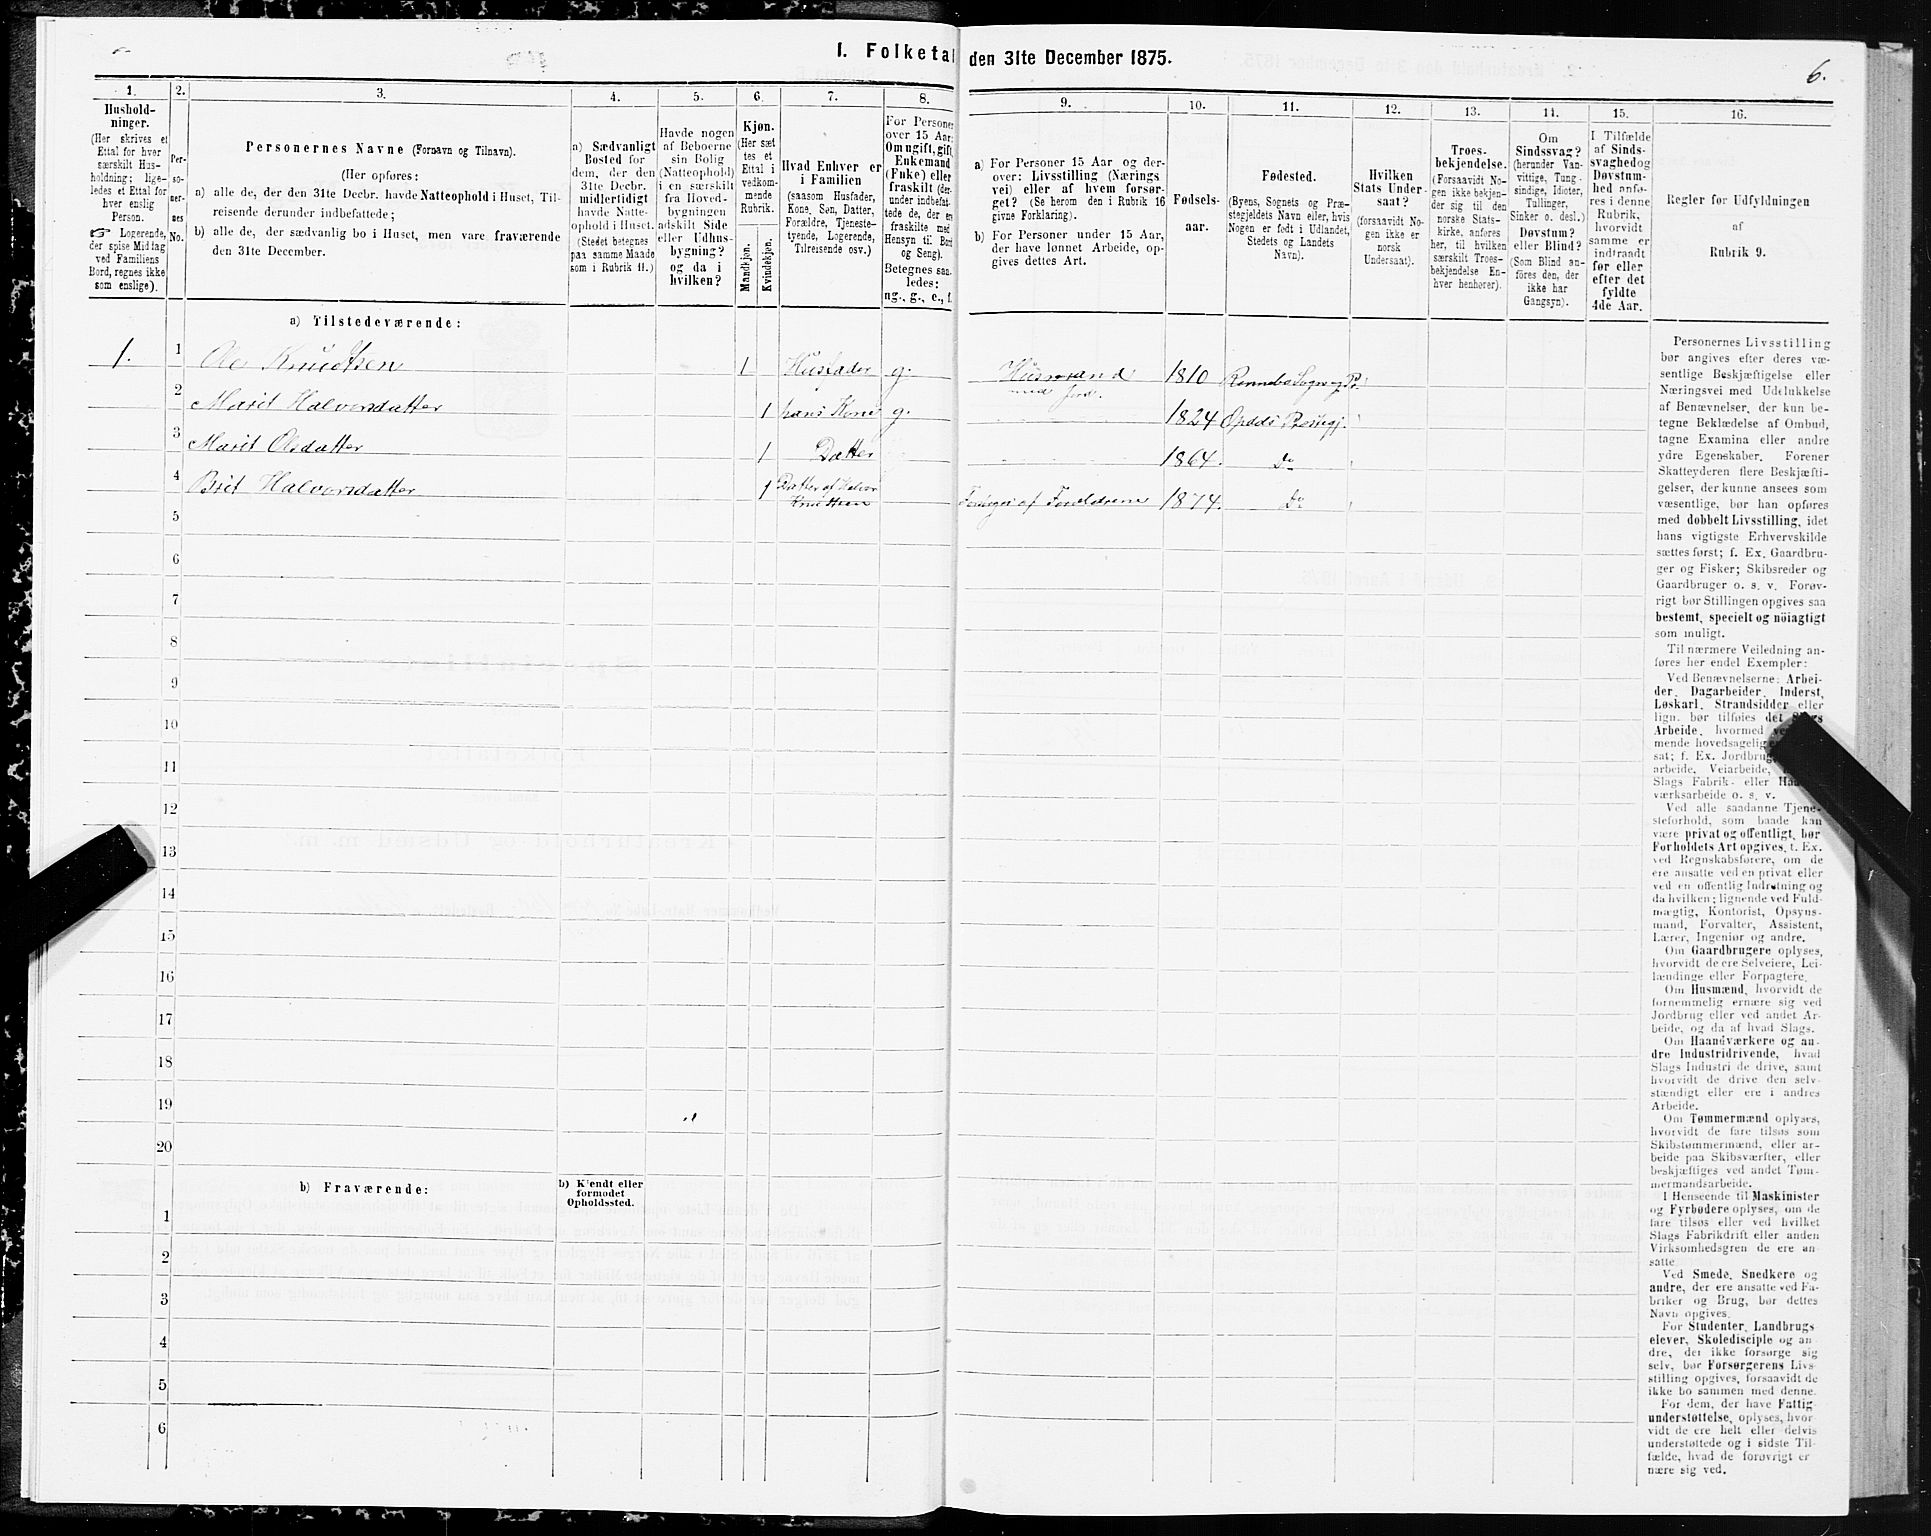 I. Folketal den 31te December 1875.
6.
1.
Hushold-
ninger.
(Her skrives et
Ettal for hver
særskilt Hus-
holdning; lige-
ledes et Ettal for
hver enslig
Person.
Logerende,
der spise Middag
ved Familiens
Bord, regnes ikke
som enslige).
2.
Per-
so-
ner-
nes
No.
3.
Personernes Navne (Fornavn og Tilnavn).
(Her opføres:
a) alle de, der den 31te Decbr. havde Natteophold i Huset, Til-
reisende derunder indbefattede;
b) alle de, der sædvanlig bo i Huset, men vare fraværende
den 31te December.
4.
a) Sædvanligt
Bosted for
dem, der den
31te Decbr.
midlertidigt
havde Natte-
ophold i Huset.
(Stedet betegnes
paa samme Maade
som i Rubrik 11.)
5.
Havde nogen
af Beboerne
sin Bolig
(Natteophold)
i en særskilt
fra Hoved-
bygningen
adskilt Side
eller Udhus-
bygning?
og da i
hvilken?
6.
Kjøn.
(Her sæt
tes et
Ettal i
vedkom-
mende
Rubrik.
Mandkjøn.
Kvindekjøn.
7.
Hvad Enhver er
i Familien
(saasom Husfader,
Kone, Søn, Datter,
Forældre, Tjeneste-
tyende, Logerende,
Tilreisende osv.)
8.
For Personer
over 15 Aar:
Om ugift, gift,
Enkemand
(Enke) eller
fraskilt (der-
under indbefat-
tede de, der ere
fraskilte med
Hensyn til Bord
og Seng).
Betegnes saa-
ledes:
ug., g., e., f.
9.
a) For Personer 15 Aar og der-
over: Livsstilling (Nærings
vei) eller af hvem forsør-
get? (Se herom den i Rubrik 16
givne Forklaring).
b) For Personer under 15 Aar,
der have lønnet Arbeide, op-
gives dettes Art.
10.
Fødsels-
aar.
11.
Fødested.
(Byens, Sognets og Præ-
stegjeldets Navn eller, hvis
Nogen er født i Udlandet,
Stedets og Landets
Navn).
12.
Hvilken
Stats Under-
saat?
(forsaavidt No-
gen ikke er
norsk
Undersaat).
13.
Troes-
bekjendelse.
(Forsaavidt No-
gen ikke bekjen-
der sig til den
norske Stats-
kirke, anføres
her, til hvilken
særskilt Troes-
bekjendelse En-
hver henhører).
14.
Om
Sindssvag?
(herunder Van-
vittige, Tung-
sindige, Idioter,
Tullinger,
Sinker o. desl.)
Døvstum?
eller Blind?
(Som Blind an-
føres den, der
ikke har
Gangsyn).
15.
I Tilfælde
af Sinds-
svaghed og
Døvstum-
hed anfø-
res i denne
Rubrik,
hvorvidt
samme er
indtraadt
før eller
efter det
fyldte
4de Aar.
16.
Regler for Udfyldningen
af
Rubrik 9.
a) Tilstedeværende:
1. 1 Ole Knudtsen 1 Husfader g. Husmand med Jord. 1810 Rennebo Sogn og Pr.
2 Marit Halvorsdatter 1 hans Kone g. 1824 Opdals Prestegj.
3 Marit Olsdatter 1 Datter 1864. Do
4 Brit Halvorsdatter 1 Datter af Halvor Knudtsen Forsørges af Forældrene 1874. Do
5
6
7
8
9
10
11
12
13
14
15
16
17
18
19
20
b) Fraværende:
b) Kjendt eller
formodet
Opholdssted.
1
2
3
4
5
6
Personernes Livsstilling
bør angives efter deres væ-
sentlige Beskjæftigelse eller
Næringsvei med Udelukkelse
af Benævnelser, der kun be-
tegne Beklædelse af Ombud,
tagne Examina eller andre
ydre Egenskaber. Forener
Skatteyderen flere Beskjæfti-
gelser, der kunne ansees som
væsentlige, bør han opføres
med dobbelt Livsstilling, idet
hans vigtigste Erhvervskilde
sættes først; f. Ex. Gaardbru-
ger og Fisker; Skibsreder og
Gaardbruger o. s. v. Forøv-
rigt bør Stillingen opgives saa
bestemt, specielt og nöiagtigt
som muligt.
Til nærmere Veiledning an-
føres her endel Exempler:
Ved Benævnelserne: Arbei-
der, Dagarbeider, Inderst,
Løskarl, Strandsidder eller
lign. bør tilføies det Slags
Arbeide, hvormed
mende hovedsagelig
sat; f. Ex. Jordbrug,
arbeide, Veiarbeide,
Slags Fabrik- eller
værksarbeide o. s. v.
Ved alle saadanne Tjene-
steforhold, som baade kan
være privat og offentligt, bør
Forholdets Art opgives, f. Ex.
ved Regnskabsførere, om de
ere ansatte ved en privat eller
ved en offentlig Indretning og
da hvilken; lignende ved Fuld-
mægtig, Kontorist, Opsyns-
mand, Forvalter, Assistent,
Lærer, Ingeniør og andre.
Om Gaardbrugere oplyses,
hvorvidt de ere Selveiere, Lei-
lændinge eller Forpagtere.
Om Husmænd, hvorvidt de
fornemmelig ernære sig ved
Jordbrug eller ved andet Ar-
beide, og da af hvad Slags.
Om Haandværkere og an-
dre Industridrivende, hvad
Slags Industri de drive, samt
hvorvidt de drive den selv-
stændigt eller ere i andres
Arbeide.
Om Tømmermænd oplyses,
hvorvidt de fare tilsøs som
Skibstømmermænd, eller ar-
beide paa Skibsværfter, eller
beskjæftiges ved andet Tøm-
mermandsarbeide.
I Henseende til Maskinister
og Fyrbødere oplyses, om de
fare tilsøs eller ved hvilket
Slags Fabrikdrift eller anden
Virksomhedsgren de ere an-
satte.
Ved Smede, Snedkere og
andre, der ere ansatte ved Fa-
briker og Brug, bør dettes
Navn opgives.
For Studenter, Landbrugs-
elever, Skoledisciple og an-
dre, der ikke forsørge sig
selv, bør Forsørgerens Livs-
stilling opgives, forsaavidt de
ikke bo sammen med denne.
For dem, der have Fattig-
understøttelse, oplyses, hvor-
vidt de ere helt eller delvis
understøttede og i sidste Til-
fælde, hvad de forøvrigt er-
nære sig ved.